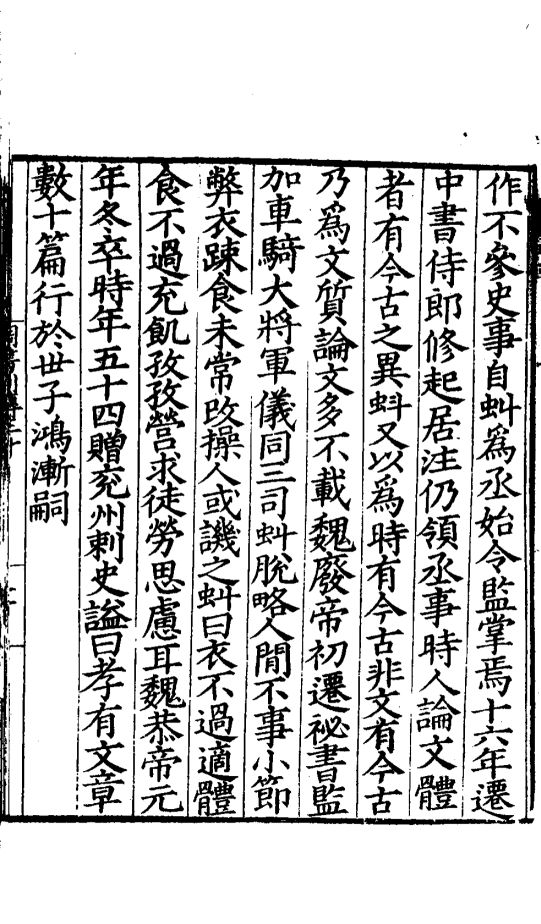 作不參史事自虯爲丞始令監掌焉十六年遷
中書侍郎修起居注仍領丞事時人論文體
者有今古之異虯又以爲時有今古非文有今古
乃爲文質論文多不載魏廢帝初遷祕書監
加車騎大將軍儀同三司虯脫略人間不事小節
弊衣踈食未常改操人或譏之虯曰衣不過適體
食不過充飢孜孜營求徒勞思慮耳魏恭帝元
年冬卒時年五十四贈兗州刺史謚曰孝有文章
數十篇行於世子鴻漸嗣